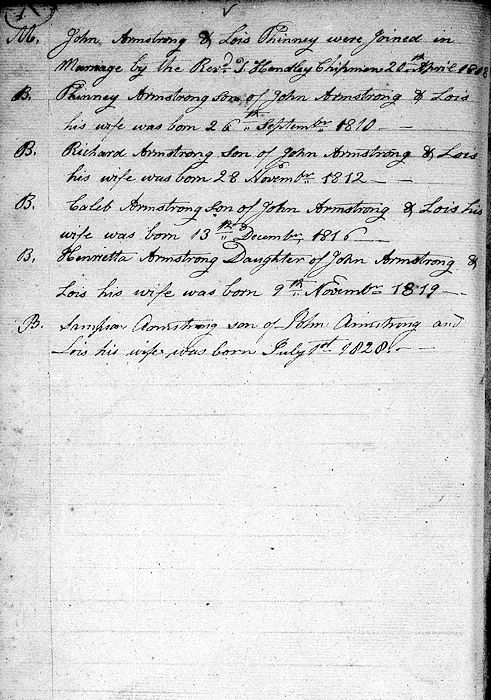 M. John Armstrong & Lois Phinney were Joined in
Marriage by the Revd. T Handley Chipman 20th April 1808
B. Phinney Armstrong son of John Armstrong & Lois
his wife was born 26th Septembr. 1810
B. Richard Armstrong son of John Armstrong & Lois
his wife was born 28 Novembr. 1812
B. Caleb Armstrong son of John Armstrong & Lois his
wife was born 13th Decembr. 1816
B. Henrietta Armstrong Daughter of John Armstrong &
Lois his wife was born 9th Novembr. 1819
B. Sampson Armstrong son of John Armstrong and
Lois his wife was born July 1st 1828.